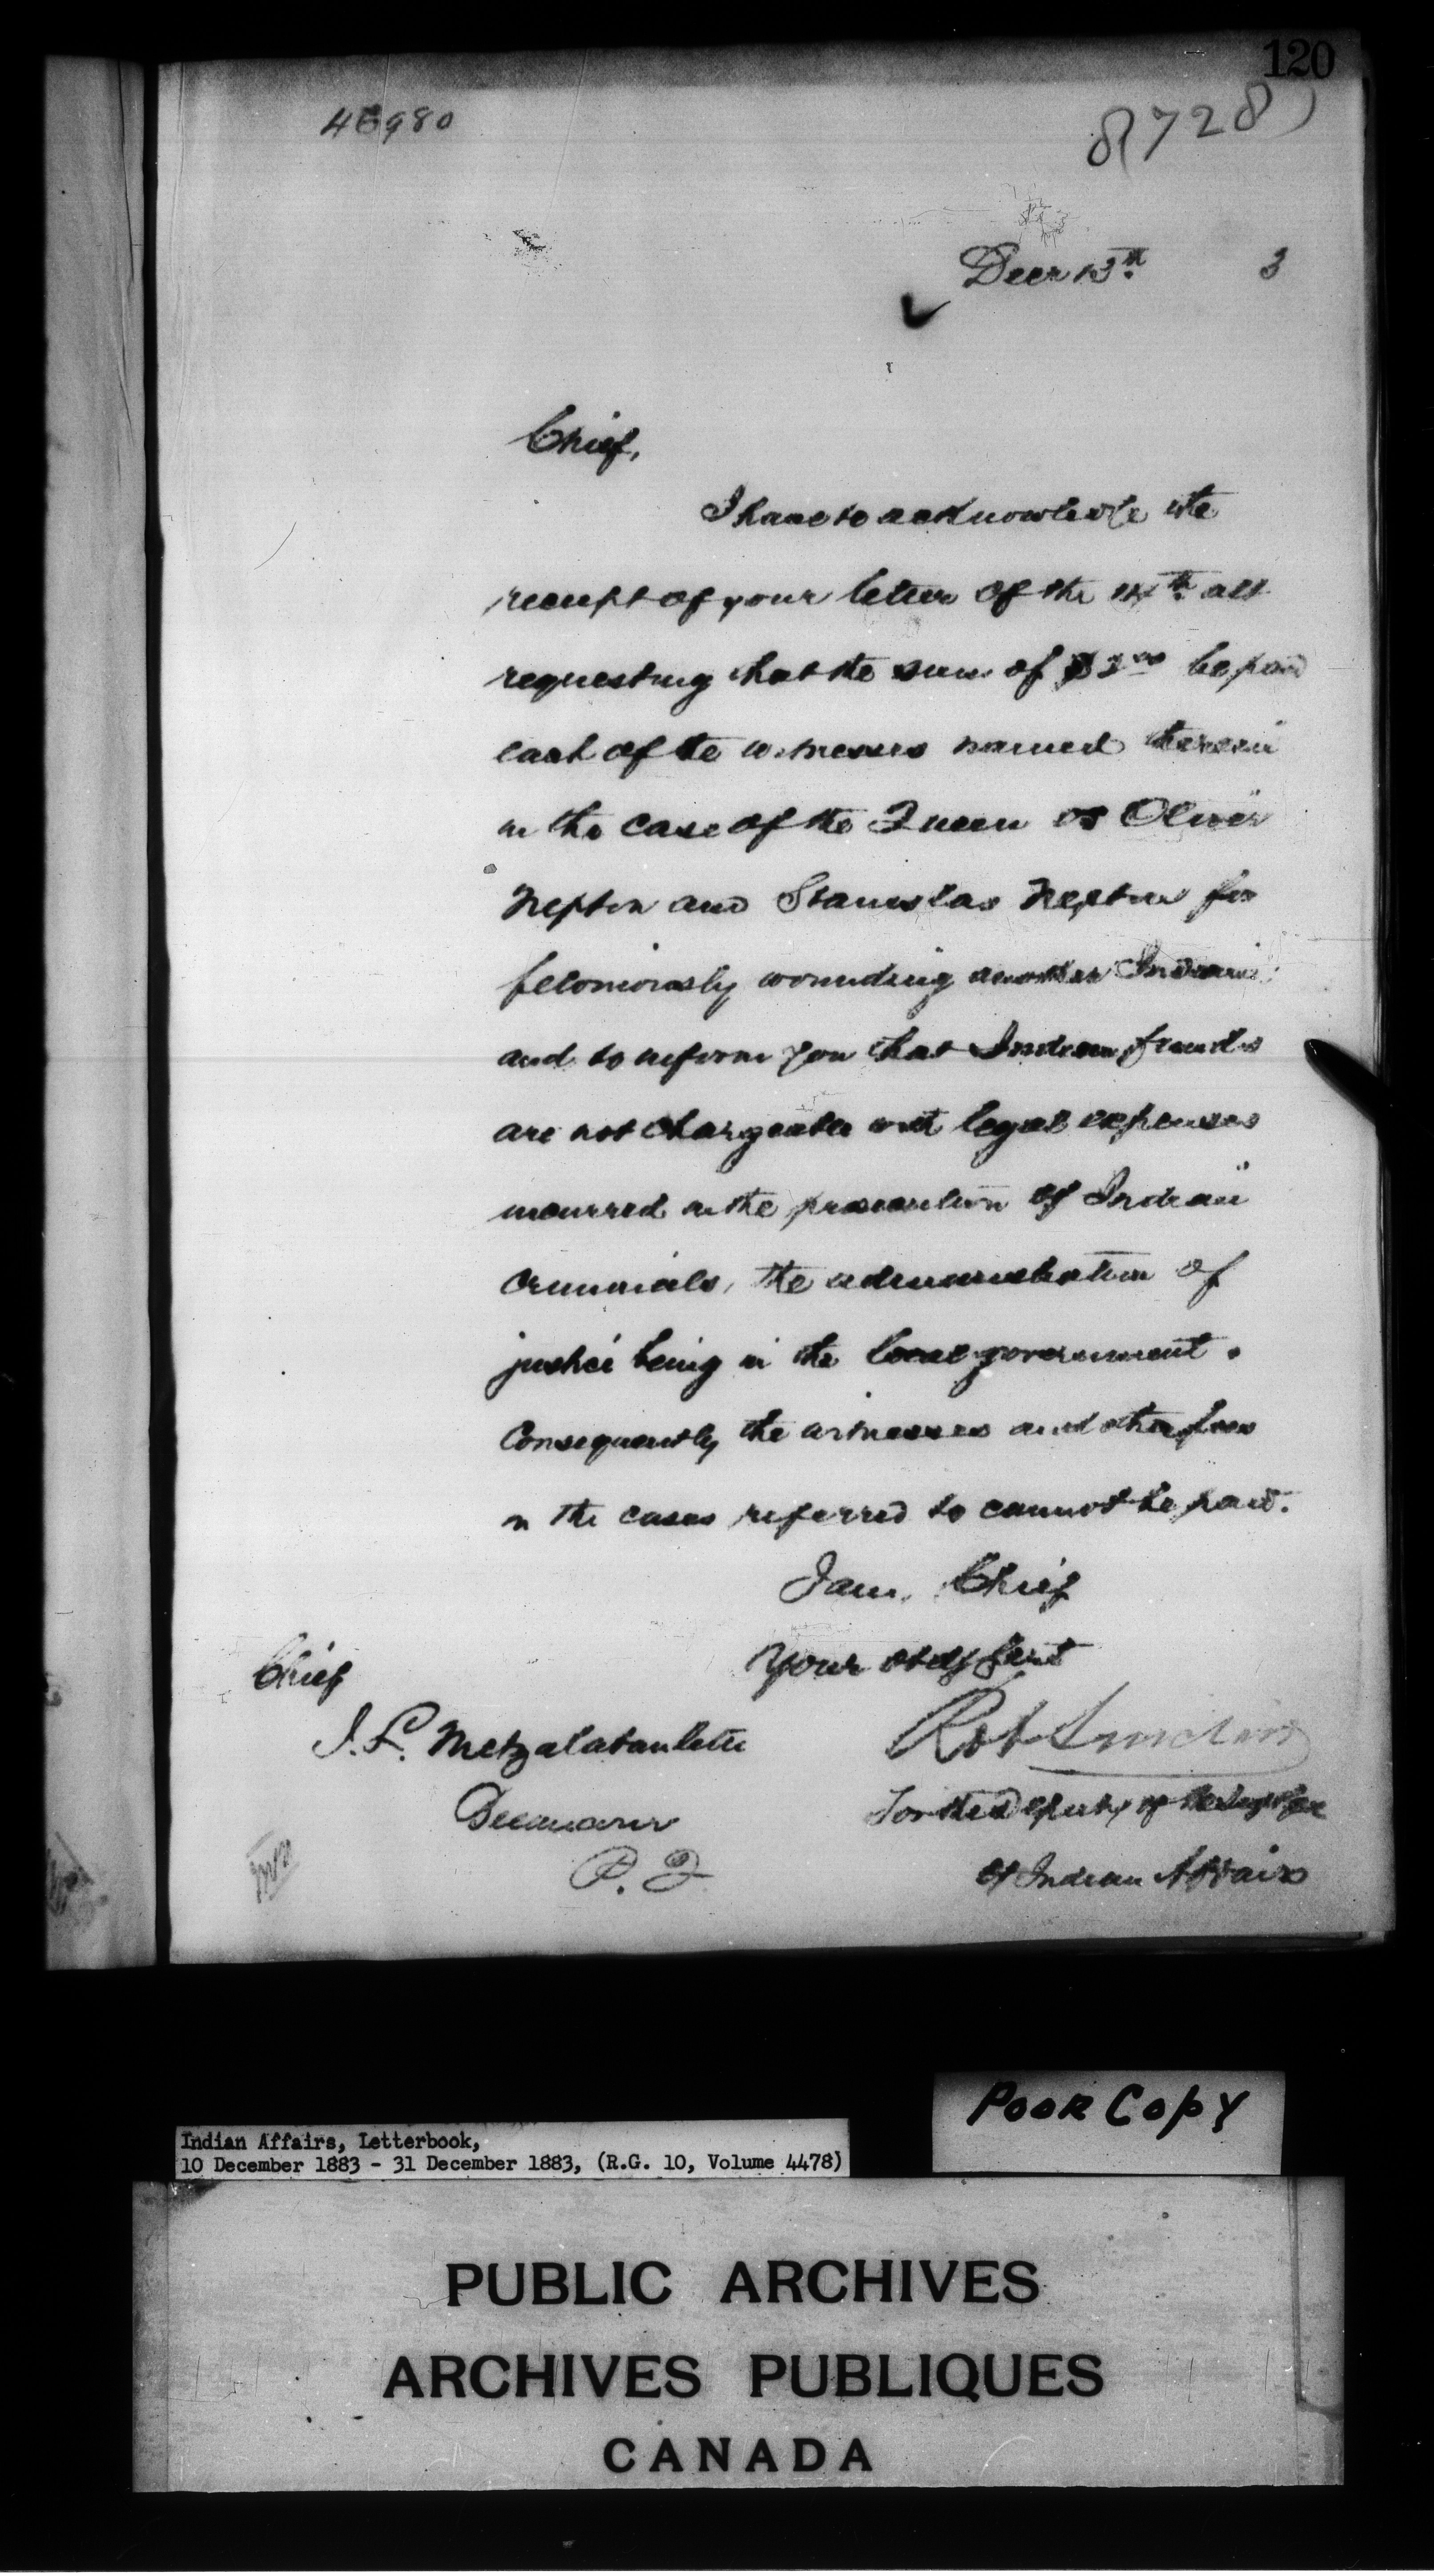 120
46980
8728
Decr 13th 3
Chief,
I have to acknowledge the
receipt of your letter of the 14th ult
requesting that the sum of $2.00 be paid
each of the witnesses named therein
in the case of the Queen vs Oliver
Nepton and Stanislas Nepton for
feloniously wounding another Indian
and to inform you that Indian funds
are not chargeable with legal expenses
incurred in the prosecution of Indian
criminals, the administration of
justice being in the local government.
Consequently the witnesses and other fees
in the cases referred to cannot be paid.
I am, Chief
Your obdt Servt
Chief
Rob Sinclair
J. P.
For the Deputy of the Supt Gen
of Indian Affairs
P. Q
Poor Copy
Indian Affairs, Letterbook,
10 December 1883 - 31 December 1883, (R.G. 10, Volume 4478)
PUBLIC ARCHIVES
ARCHIVES PUBLIQUES
CANADA